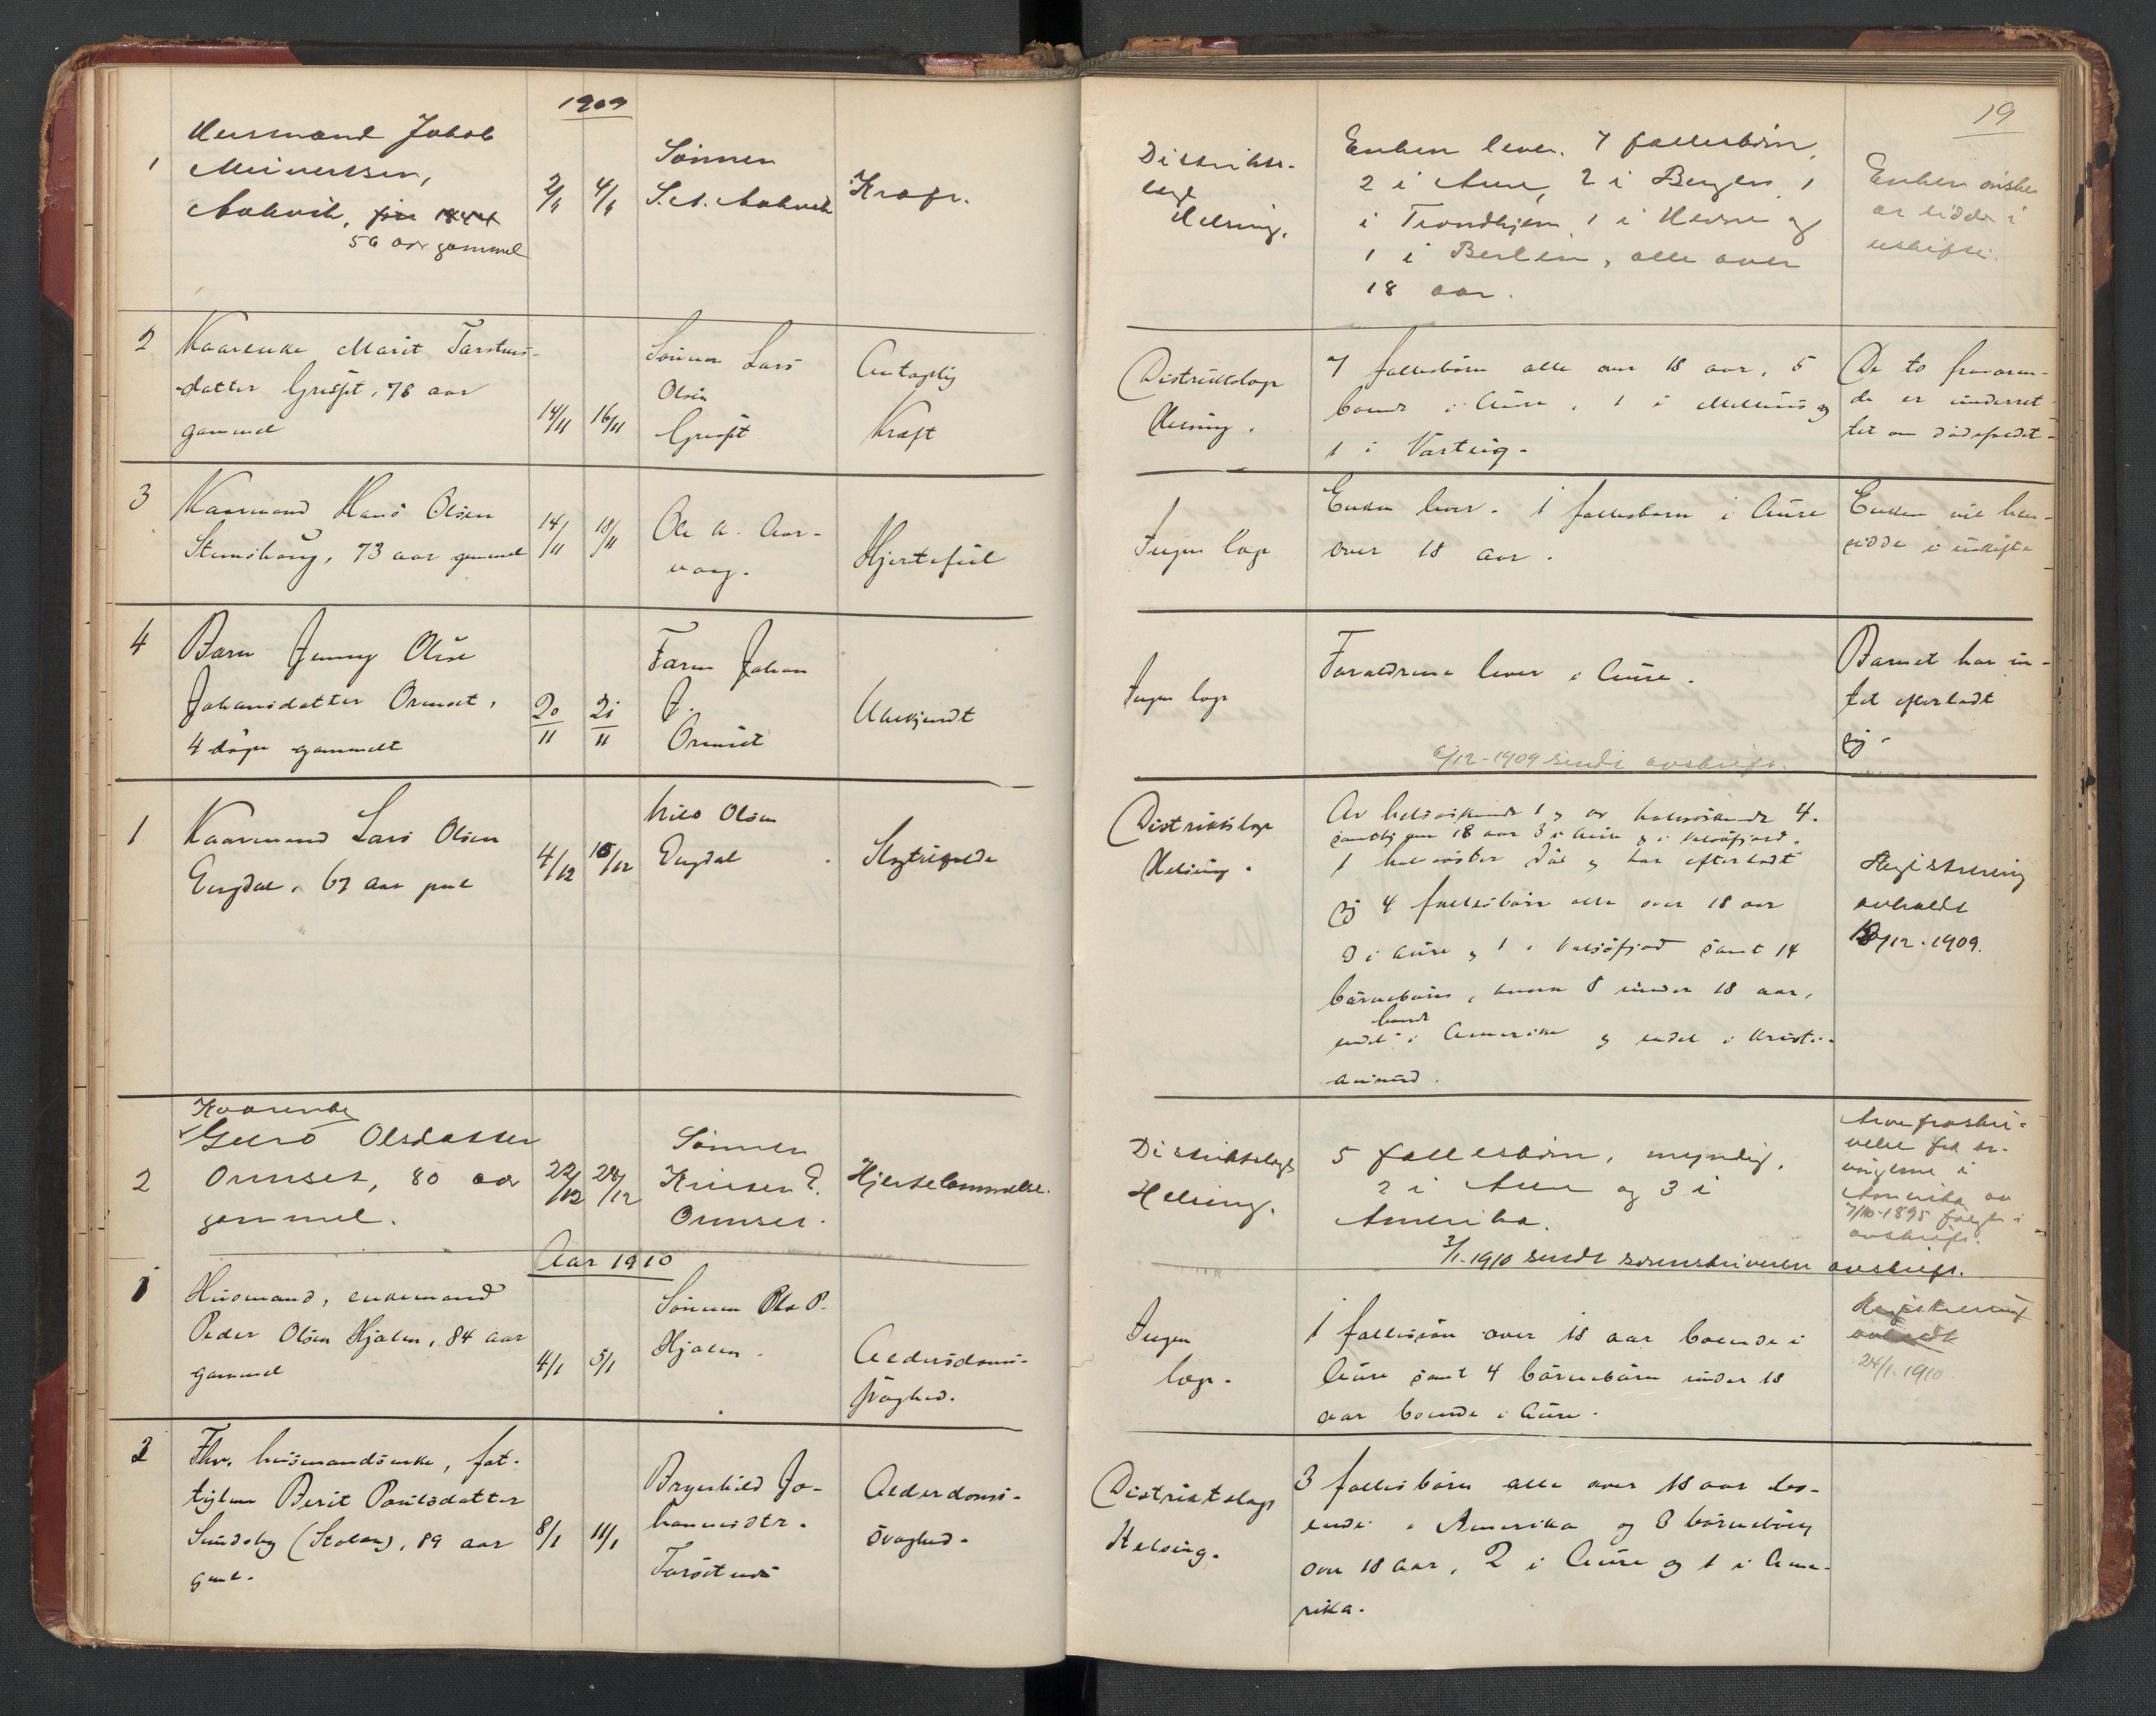 1909
19
1
Husmand Jakob
Meivertsen,
Aakvik, før 1844
56 aar gammel
2/11
4/11
Sønnen
S. A. Aakvik
Kræft.
Distrikts-
læge
Helsing.
Enken lever. 7 fællesbørn,
2 i Aure, 2 i Bergen, 1
i Trondhjem, 1 i Hevne og
1 i Berlin, alle over
18 aar.
Enken ønsker
at sidde i
uskifte.
2
Kaarenke Marit Tarstens-
datter Gresset, 78 aar
gammel
14/11
16/11
Sønnen Lars
Olsen
Gresset
Antagelig
Kræft
Distriktslæge
Helsing.
7 fællesbørn alle over 18 aar, 5
boende i Aure, 1 i og
1 i Varteig.
De to fraværen-
de er underret-
tet om dødsfaldet.
3
Kaarmand Hans Olsen
Stemshaug, 73 aar gammel
14/11
18/11
Ole A. Aar-
vaag.
Hjertefeil
Ingen læge
Enken lever. 1 fællesbarn i Aure
over 18 aar.
Enken vil hen-
sidde i uskifte
4
Barn Jenny Oline
Johansdatter Ormset,
4 døgn gammelt
20/11
21/11
Faren Johan
J.
Ormset
Ubekjendt
Ingen læge
Forældrene lever i Aure.
6/12-1909 sendt avskrift.
Barnet har in-
tet efterladt
sig.
1
Kaarmand Lars Olsen
Engdal, 67 aar gml
4/12
10/12
Nils Olsen
Engdal
Slagtilfælde
Distriktslæge
Helsing.
Av helsøskende 1 og av halvsøskende 4.
samtlige over 18 aar 3 i Aure og i Valsøfjord.
1 halvsøster død og har efterladt
sig 4 fællesbørn alle over 18 aar
3 i Aure og 1 i Valsøfjord samt 14
børnebørn, hvorav 8 under 18 aar,
boende
endel i Amerika og endel i Kristi-
ansund.
Registrering
avholdt
18/12-1909.
2
Kaarenke
Guro Olsdatter
Ormset, 80 aar
gammel.
22/12
28/12
Sønnen
Kristen E.
Ormset.
Hjertelammelse.
Distriktslæge
Helsing.
5 fællesbørn, myndig,
2 i Aure og 3 i
Amerika.
3/1-1910 sendt sorenskriveren avskrift.
Arvefraskri-
velse fra ar-
vingerne i
Amerika av
7/10-1895 følger i
avskrift.
Aar 1910
1
Husmand, enkemand
Peder Olsen Hjalen, 84 aar
gammel
4/1
5/1
Sønnen Ole P.
Hjalen.
Alderdoms-
svaghed.
Ingen
læge.
1 fællessøn over 18 aar boende i
Aure samt 4 børnebørn under 18
aar boende i Aure.
Registrering
avholdt
24/1-1910
2
Fhv. husmandsenke, fat-
tiglem Berit Paulsdatter
Sundsby (Stolan), 89 aar
gml.
8/1
11/1
Brynhild Jo-
hannesdtr.
Alderdoms-
svaghed.
Distriktslæge
Helsing.
3 fællesbørn alle over 18 aar bo-
ende i Amerika og 3 børnebørn
over 18 aar, 2 i Aure og 1 i Ame-
rika.